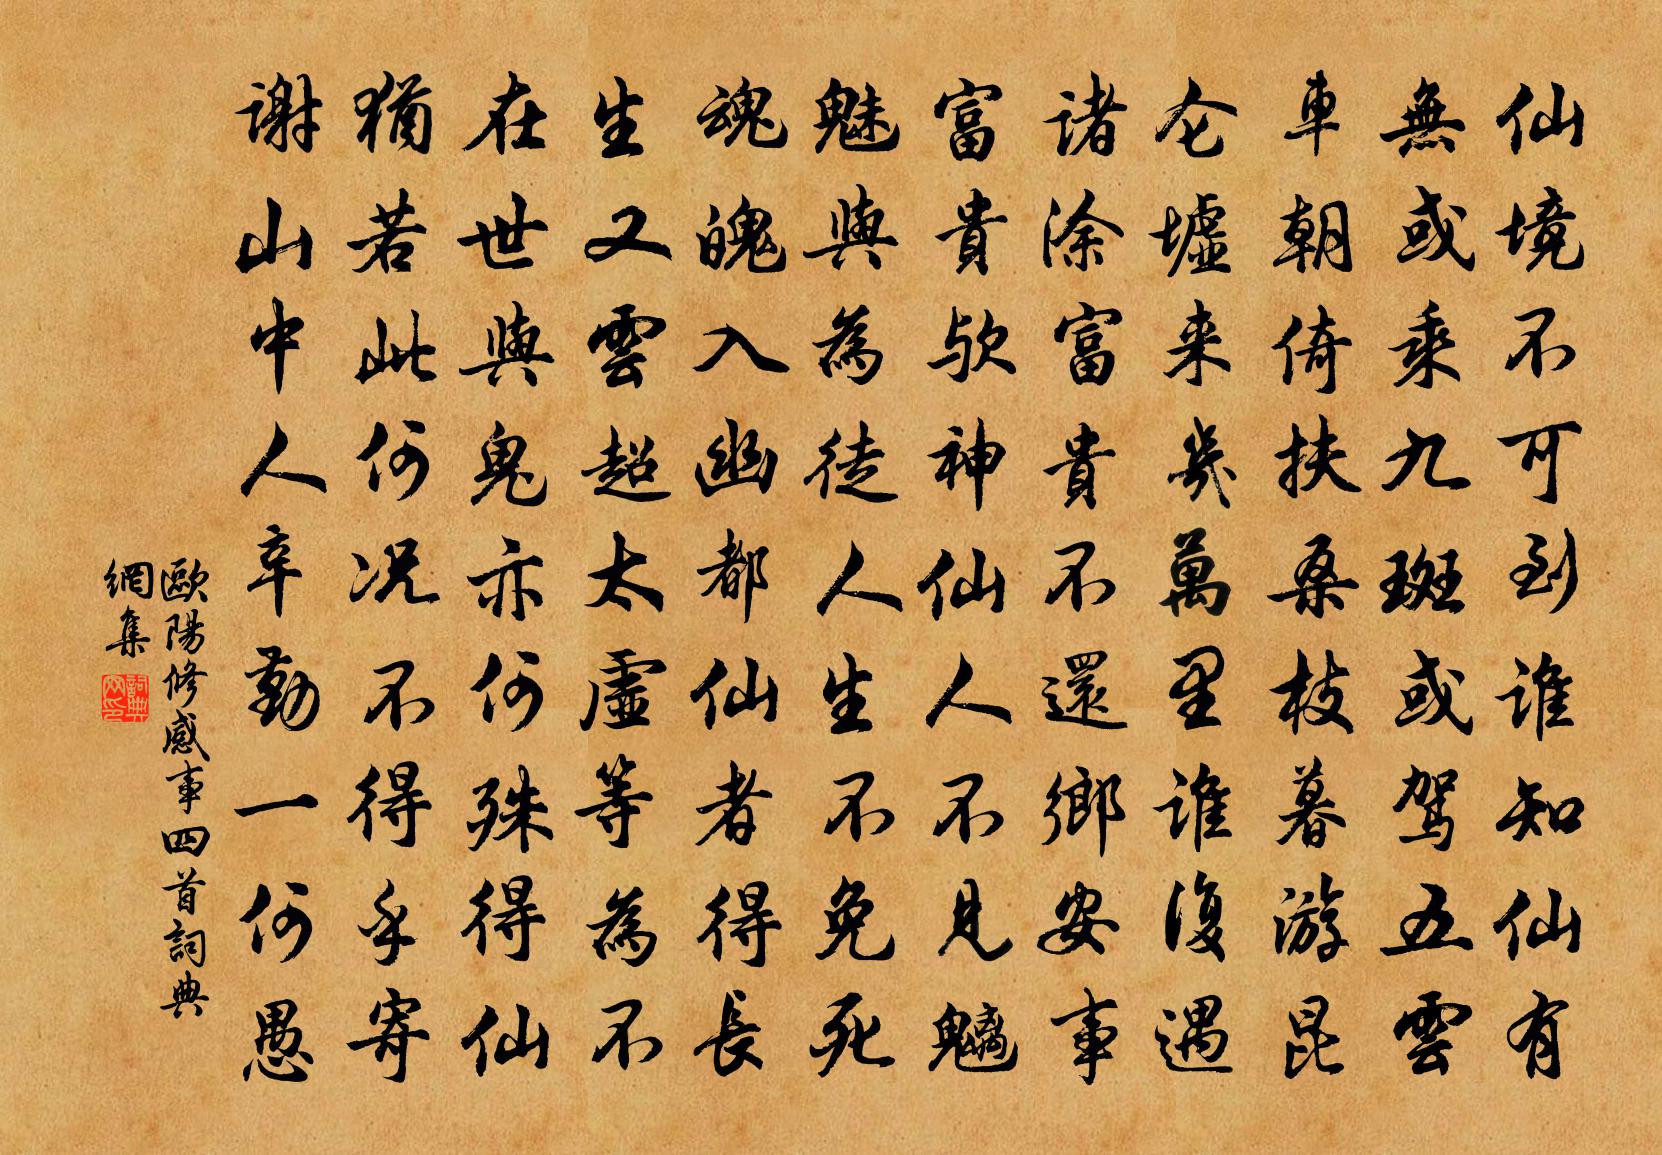 仙境不可到誰知仙有
無或乘九斑或駕五雲
車朝倚扶桑枝暮游昆
仑墟来幾萬里誰復遇
諸涂富貴不還鄉安事
富貴欤神仙人不見魑
魅與為徒人生不免死
魂魄入幽都仙者得長
生又雲超太虛等為不
在世與鬼亦何殊得仙
猶若此何况不得乎寄
谢山中人辛勤一何愚
歐陽修感事四首詞典
網集
詞典網印